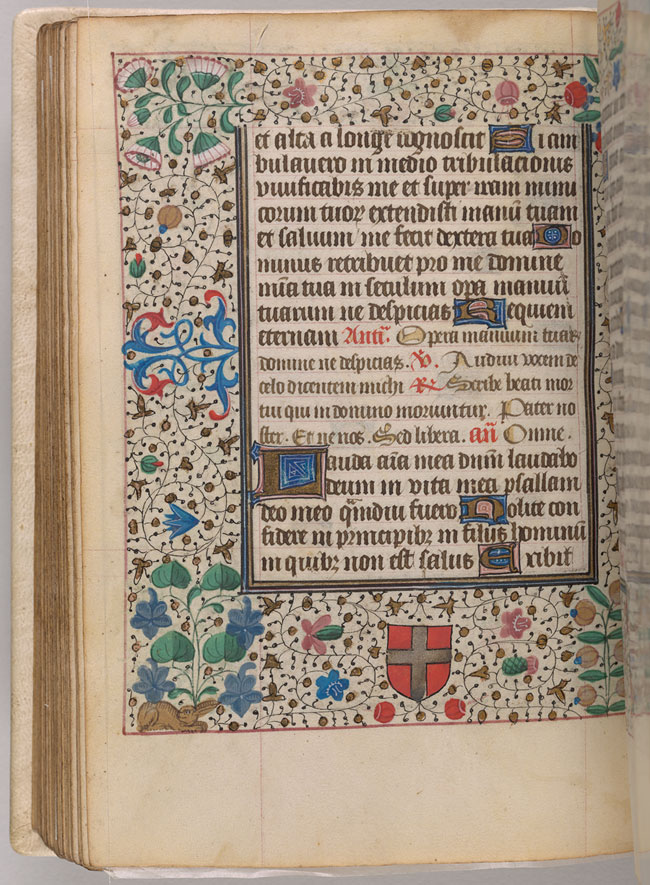 et alta a longe cognoscit Si am
bulavero in medio tribulacionis
vivificabis me et super iram inimi
corum tuor extendisti manū tuam
et salvum me fecit dextera tua Do
minus retribuet pro me domine
mīa tua in seculum opa manuū
tuarum ne despicias Requiem
eternam Antī. Opera manuum tuar
domine ne despicias. V. Audivi vocem de
celo dicentem michi R Scribe beati mor
tui qui in domino moriuntur. Pater no
ster. Et ne nos. Sed libera. añ Omne.
Lauda aīa mea dnm̄ laudabo
deum in vita mea psallam
deo meo qm̄diu fuero Nolite con
fidere in principibꝫ in filiis hominū
in quibꝫ non est salus Exibit